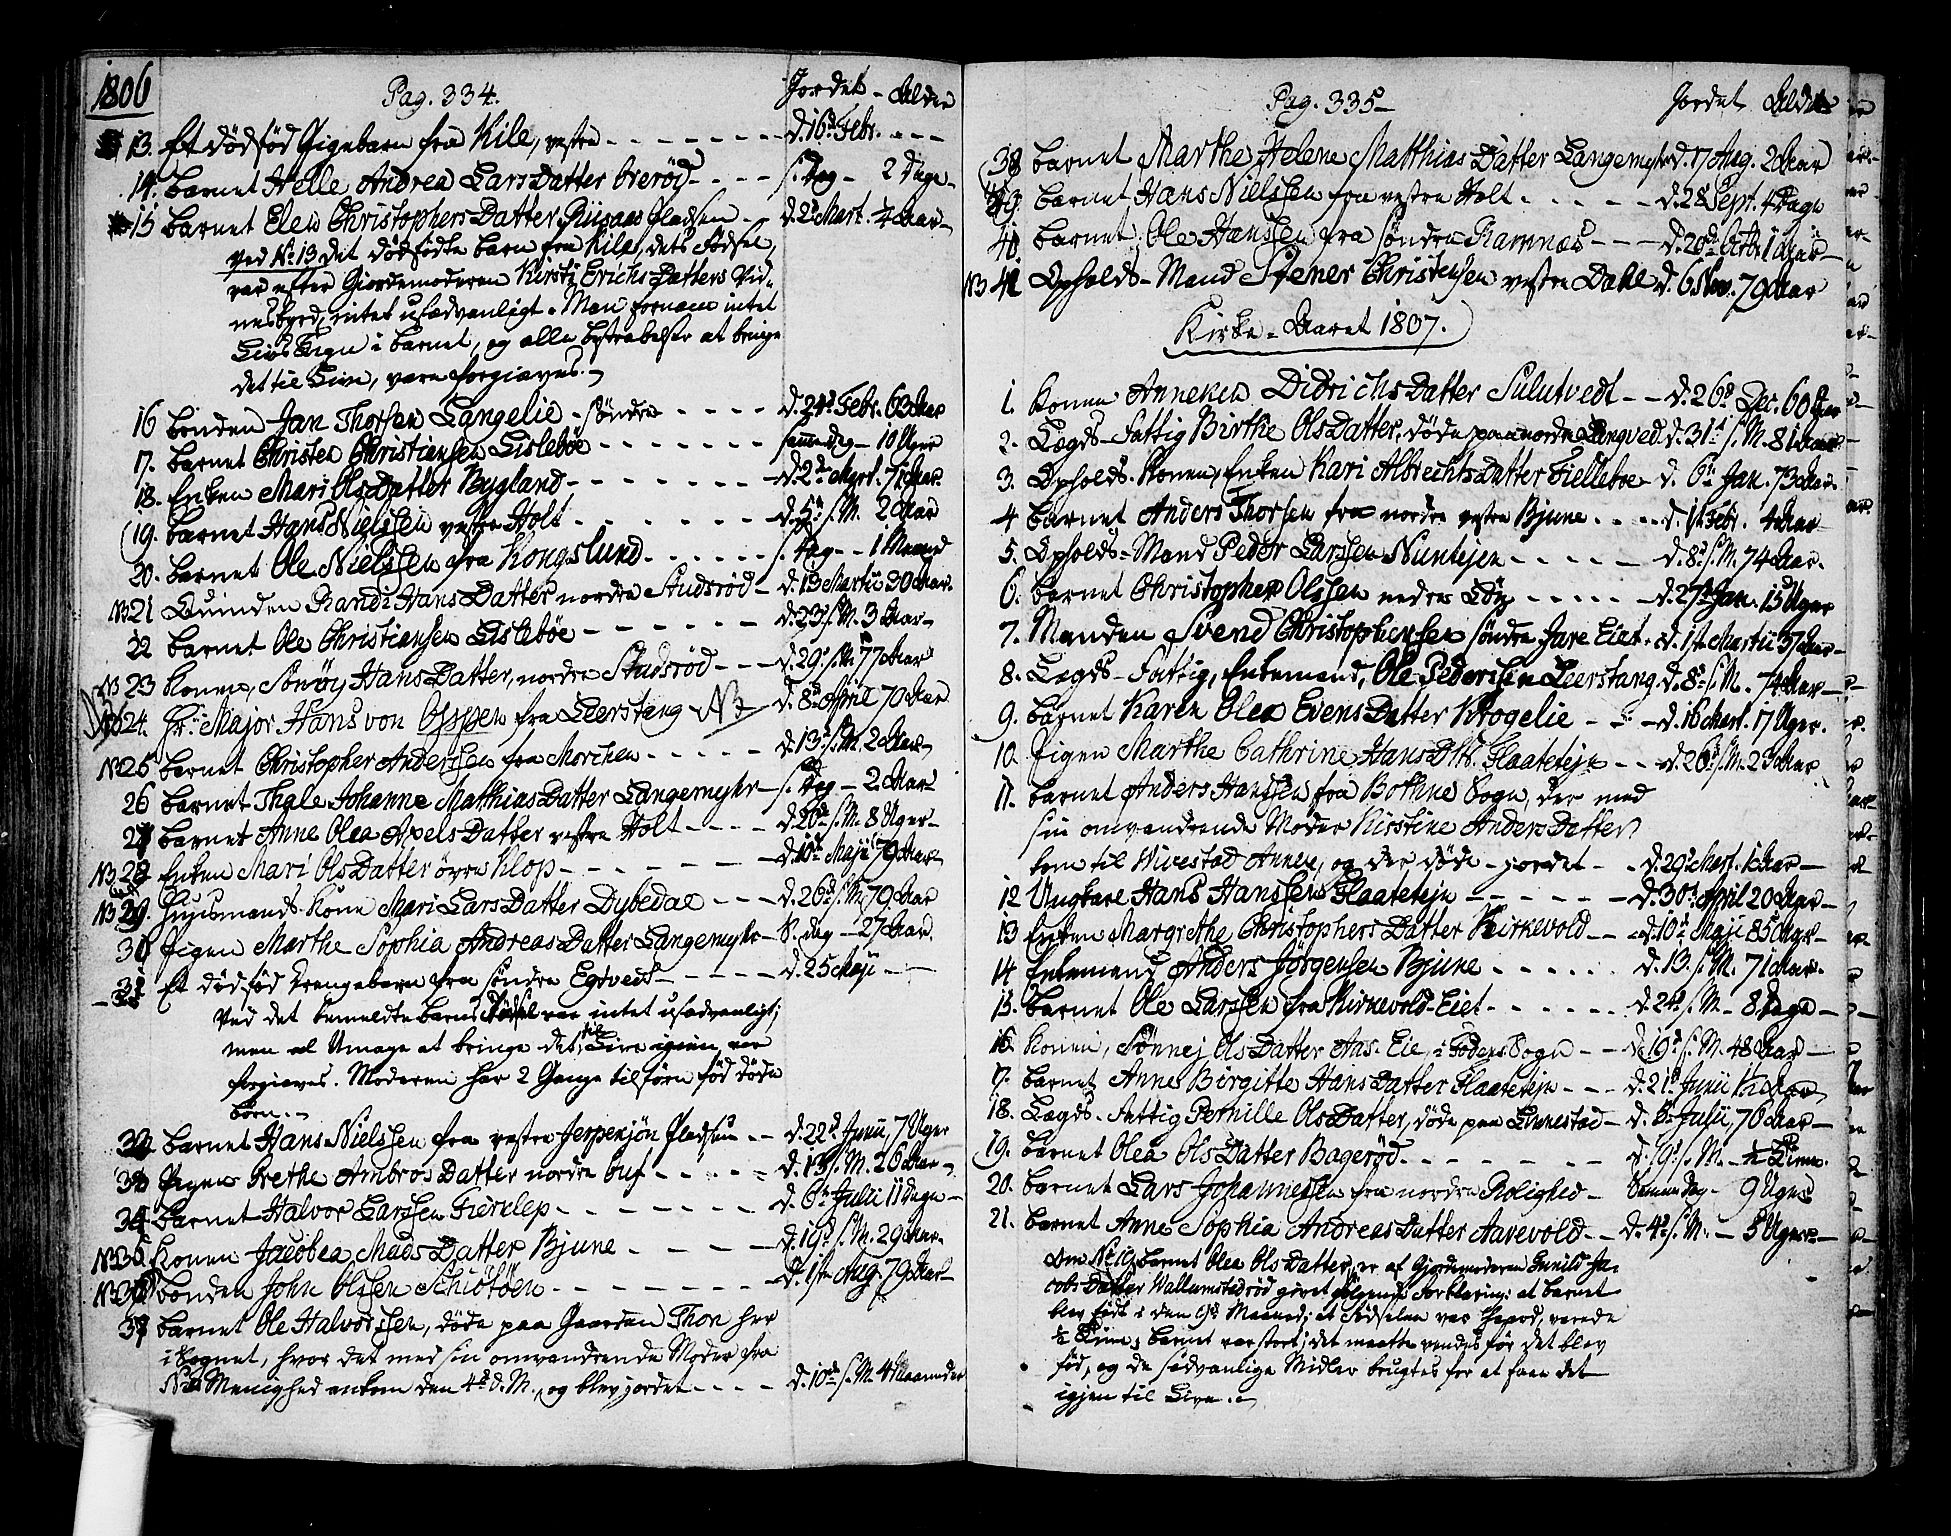 1806
Pag. 334.
Jordet - Alder
13. Et dødfød Pigebarn fra Kile, vestre - - - d. 16d Febr. - - -
14. barnet Helle Andrea LarsDatter - - - s. Dag - 2 Dage -
15 barnet Elen ChristophersDatter Pladsen - - d. 2d Mart. 1/4 Aar -
ved No 13 det dødfødte barn fra Kile, dets Fødsel,
var efter Giordemoderen Kirsti ErichsDatters Vid-
nesbyrd, intet usædvanligt. Man fornam intet
Livs Tegn i barnet, og alle bestræbelser at bringe
det til Live, vare forgiæves. -
16 bonden Jan Thorsen Langelie - søndre - - - - d. 24d Febr. 63 Aar
17. barnet Christen Christiansen Lislebøe - - - - samme dag - 10 Uger
18. Enken Mari OlsDatter Bygland - - - - d. 2d Mart. 75 Aar
(19. barnet Hans Nielssen vestre Holt - - - - d. 5d s. M. 2 Aar
20. barnet Ole Nielssen fra Kongslund - - - - s. Dag - - 1 Maaned
NB 21 Quinden Randi HansDatter nordre Studsrød - d. 13 Martii 30 Aar.
22 barnet Ole Christiansen Lislebøe - - - - d. 23 s. M. 3 Aar -
NB 23 Konen, HansDatter, nordre Studsrød - - - d. 29d s. M. 77 Aar
NB 24. Hr. Major Hans von Oppen fra Leerstang NB d. 8d April 70 Aar
NB 25 barnet Christopher Anderssen fra Morchen - - - - d. 13d s. M. 2 Aar
26 barnet Thale Johanne MatthiasDatter Langemyhr - s. Dag - 2 Aar
27 barnet Anne Olea AxelsDatter vestre Holt - - - - d. 20d s. M. 8 Uger -
NB 28 Enken Mari OlsDatter øvre Klop - - - - d. 10d Maji 79 Aar
NB 29. Huusmands Kone Mari LarsDatter Dybedal - - - d. 26d s. M. 79 Aar
30 Pigen Marthe Sophia AndreasDatter Langemyhr - S. dag - 27 Aar.
31 Et dødfød Drengebarn fra søndre Egtvedt - - - - d. 25 Maji - -
Ved det bemeldte barns Fødsel var intet usædvanligt;
men al Umage at bringe det til Live igien, var
forgiæves. Moderen har 2 Gange tilforn fød døde
børn. -
32 barnet Hans Nielssen fra vestre Jerpenjøn Pladsen - - d. 22d Junii, 7 Uger
33 Pigen Grethe AmbrosDatter nordre buf - - - - d. 13d s. M. 26 Aar -
34 barnet Halvor Larssen Fierklep - - - - d. 6d Julii 11 dage -
NB 35 Konen Jacobea MadsDatter Bjune - - - - d. 19d s. M. 29 Aar.
NB 36 bonden John Olssen Schiøtøen - - - - d. 1ste Aug. 79 Aar -
37 barnet Ole Halvorssen, døde paa Gaarden Thon her
i Sognet, hvor det med sin omvandrende Moder fra
Menighed ankom den 4d d. M., og blev jordet - - - - d. 10d s. M. 4 Maaneder
Pag. 335 -
Jordet Alder
(38 barnet Marthe Helene MatthiasDatter Langemyhr d. 17 Aug. 2 Aar
39. barnet Hans Nielssen fra vestre Holt - - - - d. 28 Sept. 4 Dage
40. barnet Ole Hanssen fra søndre Ramnæs - - - d. 20d Octbr. 1 Aar -
NB 41 Opholds-Mand Stener Christensen vestre Dahl d. 6 Nov. 79 Aar
Kirke-Aaret 1807.
1. Konen Anneken DidrichsDatter Sulutvedt - - d. 26d Dec. 60 Aar
2. Lægds-Fattig Birthe OlsDatter, døde paa nordre Langved d. 31d s. M. 81 Aar
3. Opholds-Konen, Enken Kari AlbrechtsDatter Fielleboe - d. 6d Jan. 73 Aar.
4 barnet Anders Thorsen fra nordre vestre Bjune - - - - d. 1ste Febr. 4 Aar
5. Opholds-Mand Peder Larssen Nuntejen - - - - d. 8d s. M. 74 Aar.
6. barnet Christopher Olssen nedre - - - - d. 27d Jan. 15 Uger
7. Manden Svend Christophersen søndre Jare Eiet - d. 1ste Martii 37 Aar -
8. Lægds-Fattig, Enkemand, Ole Pederssen Leerstang d. 8d s. M. - 74 Aar -
9. barnet Karen Olea EvensDatter Krogelie - - - d. 16 Mart. 17 Uger.
10. Pigen Marthe Cathrine HansDtr. Flaatetejn - - d. 26d s. M. 23 Aar
11. barnet Anders Hanssen fra Bothne Sogn, der med
sin omvandrende Moder Kirstine AndersDatter
kom til Annex, og der døde - jordet - - d. 29d Mart. 1 Aar -
12 Ungkarl Hans Hanssen Flaatetejn - - - - d. 30d April 20 Aar -
13 Enken Margrethe ChristophersDatter Kirkevold - - d. 10d Maji 85 Aar -
14 Enkemand Anders Jørgensen Bjune - - - - d. 13. s. M. 71 Aar.
15. barnet Ole Larssen fra Kirkevold-Eiet - - - - d. 24d s. M. - 8 Dage -
16. Konen, Sønnej OlsDatter Aas-Eie, i Sogn - - d. 19d s. M. 48 Aar -
17. barnet Anne Birgitte HansDatter Flaatetejn - - - d. 21d Junii 1 1/2 Aar
18. Lægds-Fattig Pernille OlsDatter, døde paa Linnestad - d. 5d Julii, 70 Aar -
(19. barnet Olea OlsDatter Bagerød - - - - d. 19d s. M. - 1/2 Time.
20. barnet Lars Johannessen fra nordre Rolighed - Samme Dag - 9 Uger
21. barnet Anne Sophia AndreasDatter Aarevold - - d. 4d s. M. - 5 Uger -
Om No 19, barnet Olea OlsDatter, er af Gjordemoderen Gunild Ja-
cobsDatter Wallumstadrød gjort følgende Forklaring: at barnet
blev født i den 9d Maaned; at Fødselen var haard, varede
1/2 Time; barnet var stort; det maatte vendes før det blev
fød, og de sædvanlige Midler brugtes for at faae det
igjen til Live. -